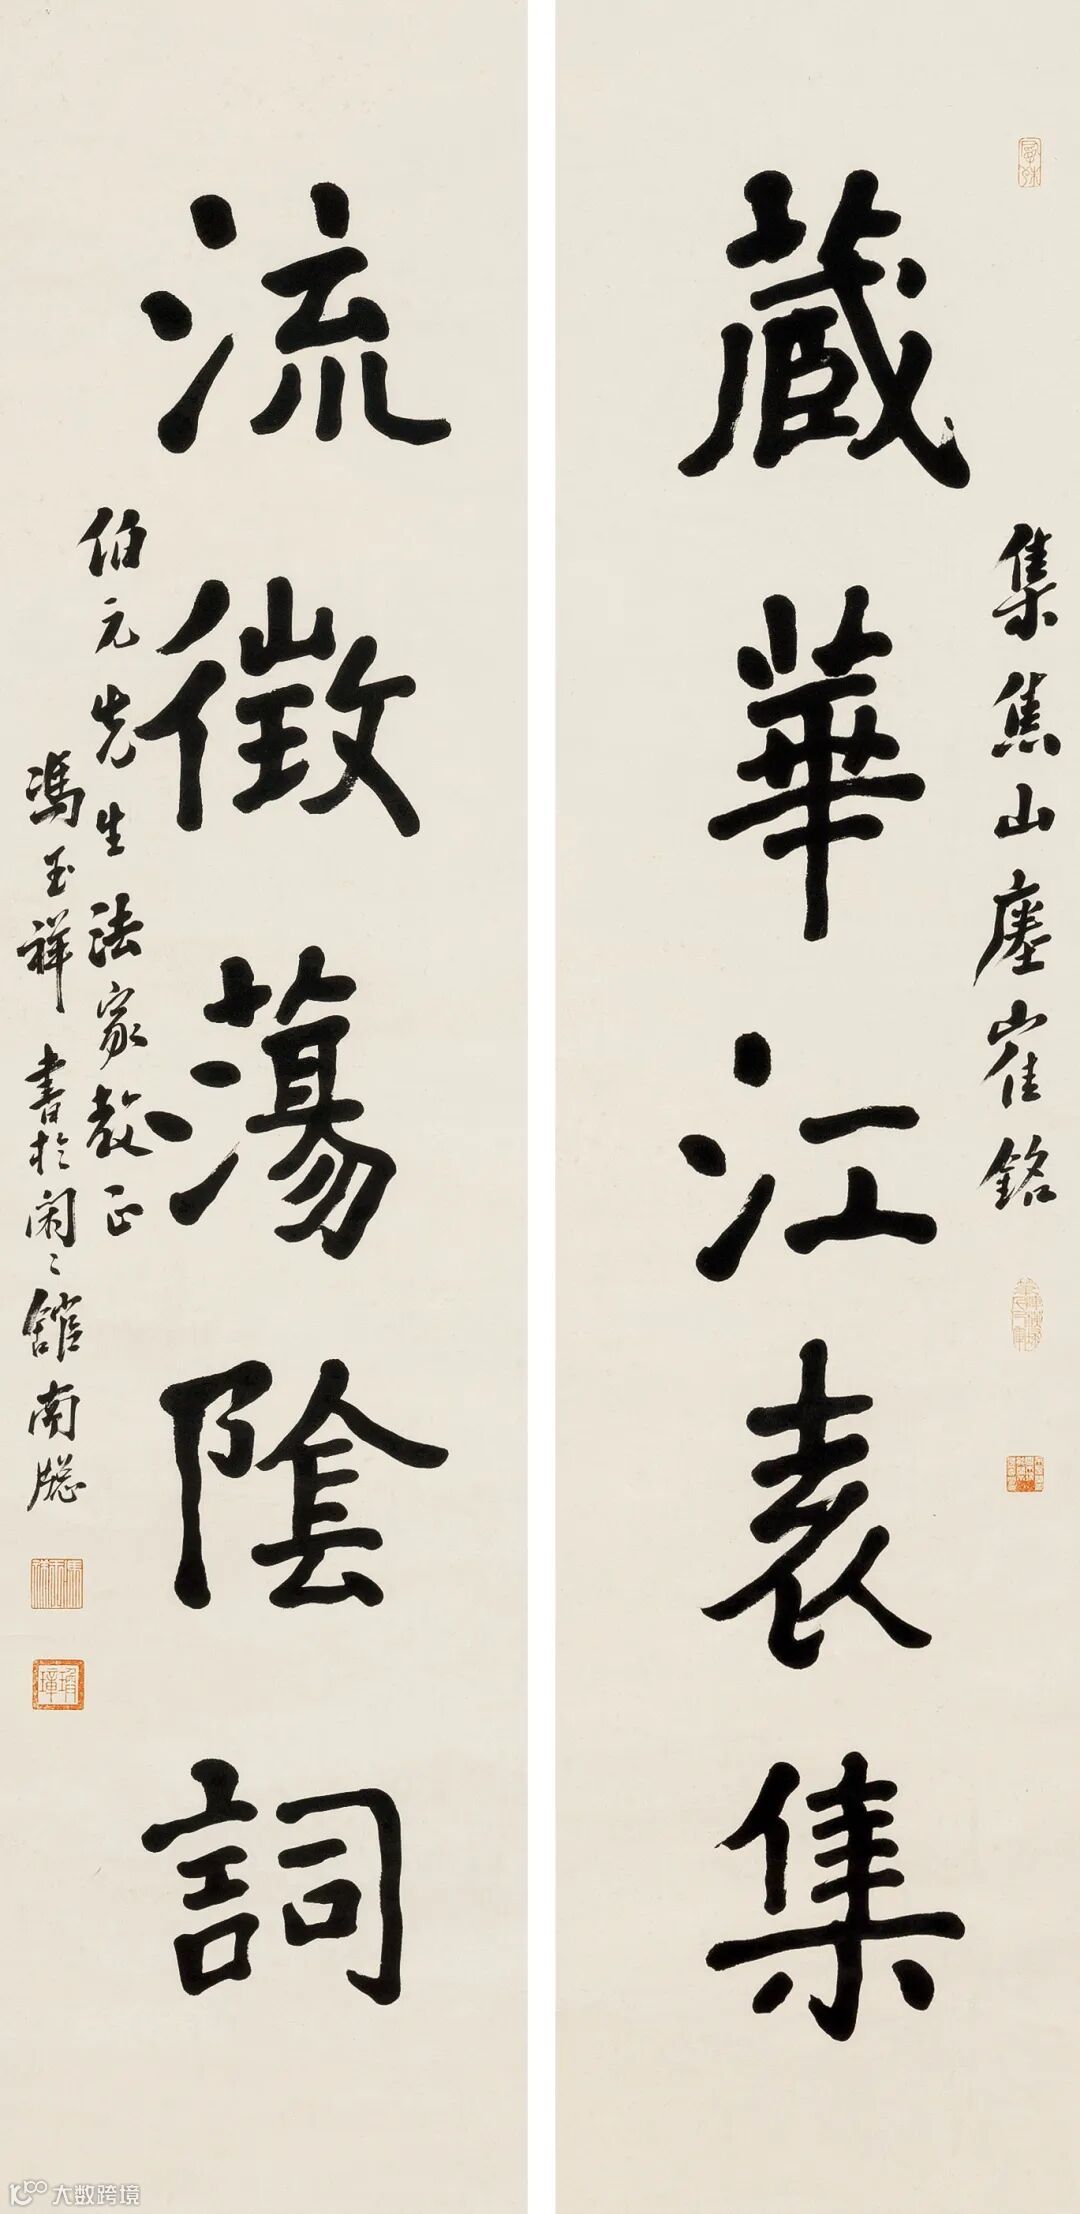 集焦山瘞寉銘
藏華江表集
流徵蕩陰詞
伯元先生法家教正
馮玉祥書於閒〻館南牕
大数跨境